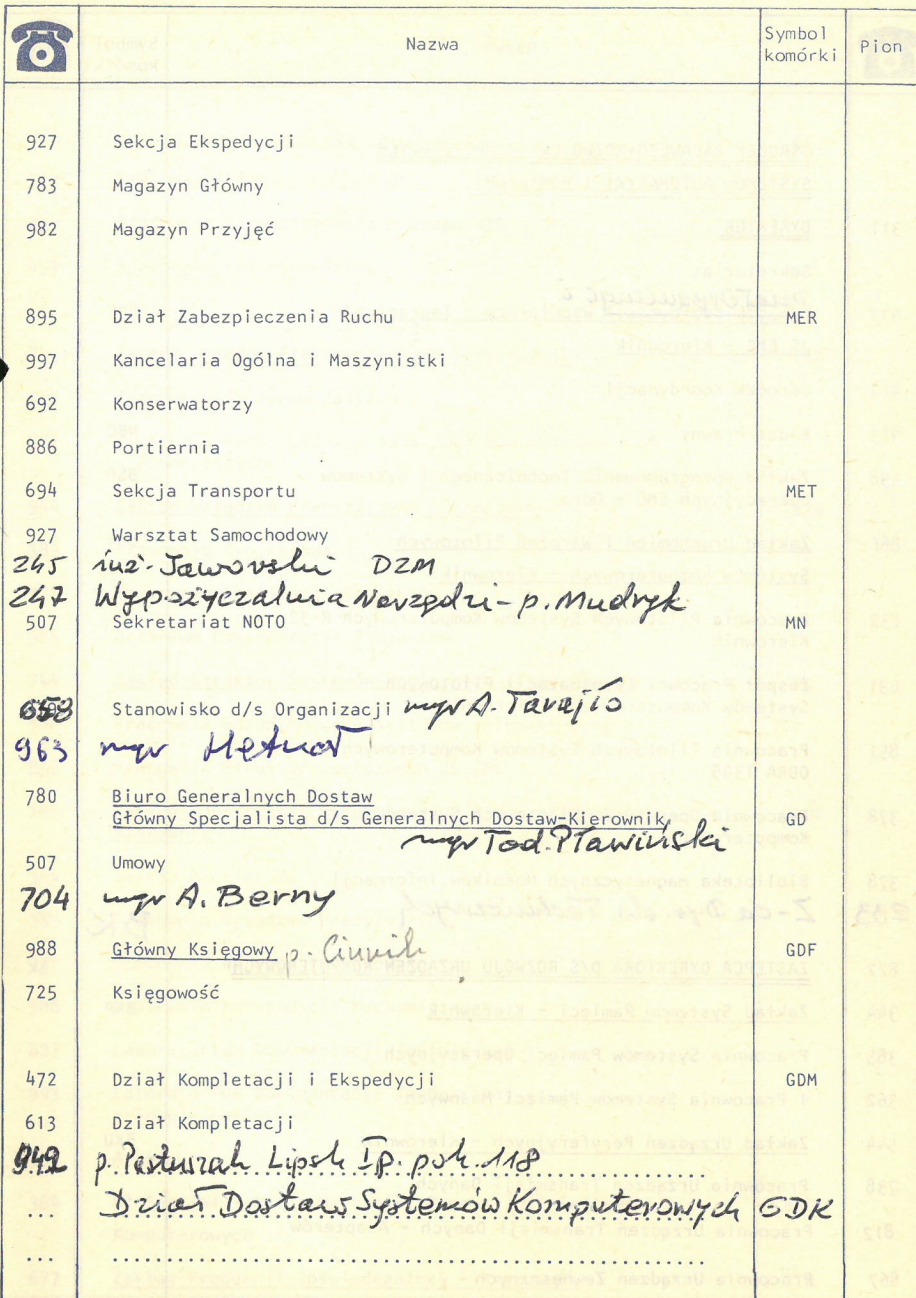 Nazwa Symbol komórki Pion
927 Sekcja Ekspedycji
783 Magazyn Główny
982 Magazyn Przyjęć
895 Dział Zabezpieczenia Ruchu MER
997 Kancelaria Ogólna i Maszynistki
692 Konserwatorzy
886 Portiernia
694 Sekcja Transportu MET
927 Warsztat Samochodowy
245 inż. Jaworski DZM
247 Wypożyczalnia Narzędzi - p. Mudryk
507 Sekretariat NOTO MN
Stanowisko d/s Organizacji mgr A.
963 mgr
780 Biuro Generalnych Dostaw
Główny Specjalista d/s Generalnych Dostaw-Kierownik GD
mgr Tad. Pławiński
507 Umowy
704 mgr A. Berny
988 Główny Księgowy p. GDF
725 Księgowość
472 Dział Kompletacji i Ekspedycji GDM
613 Dział Kompletacji
942 p. Lipsk Ip. pok. 118
... Dział Dostaw Systemów Komputerowych GDK
... ......................................................